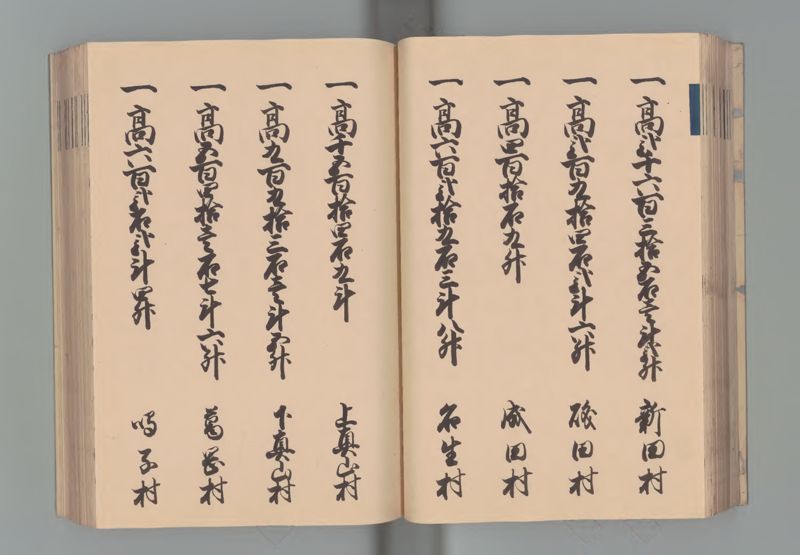 一高弐千六百三拾五石壱斗弐升 新田村
一高弐百九拾四石弐斗六升 磯田村
一高四百拾石九升 成田村
一高六百弐拾五石三斗八升 名生村
一高千五百拾四石九斗 上真山村
一高九百九拾三石壱斗五升 下真山村
一高五百四拾壱石七斗六升 葛岡村
一高六百弐石弐斗四升 鳴子村